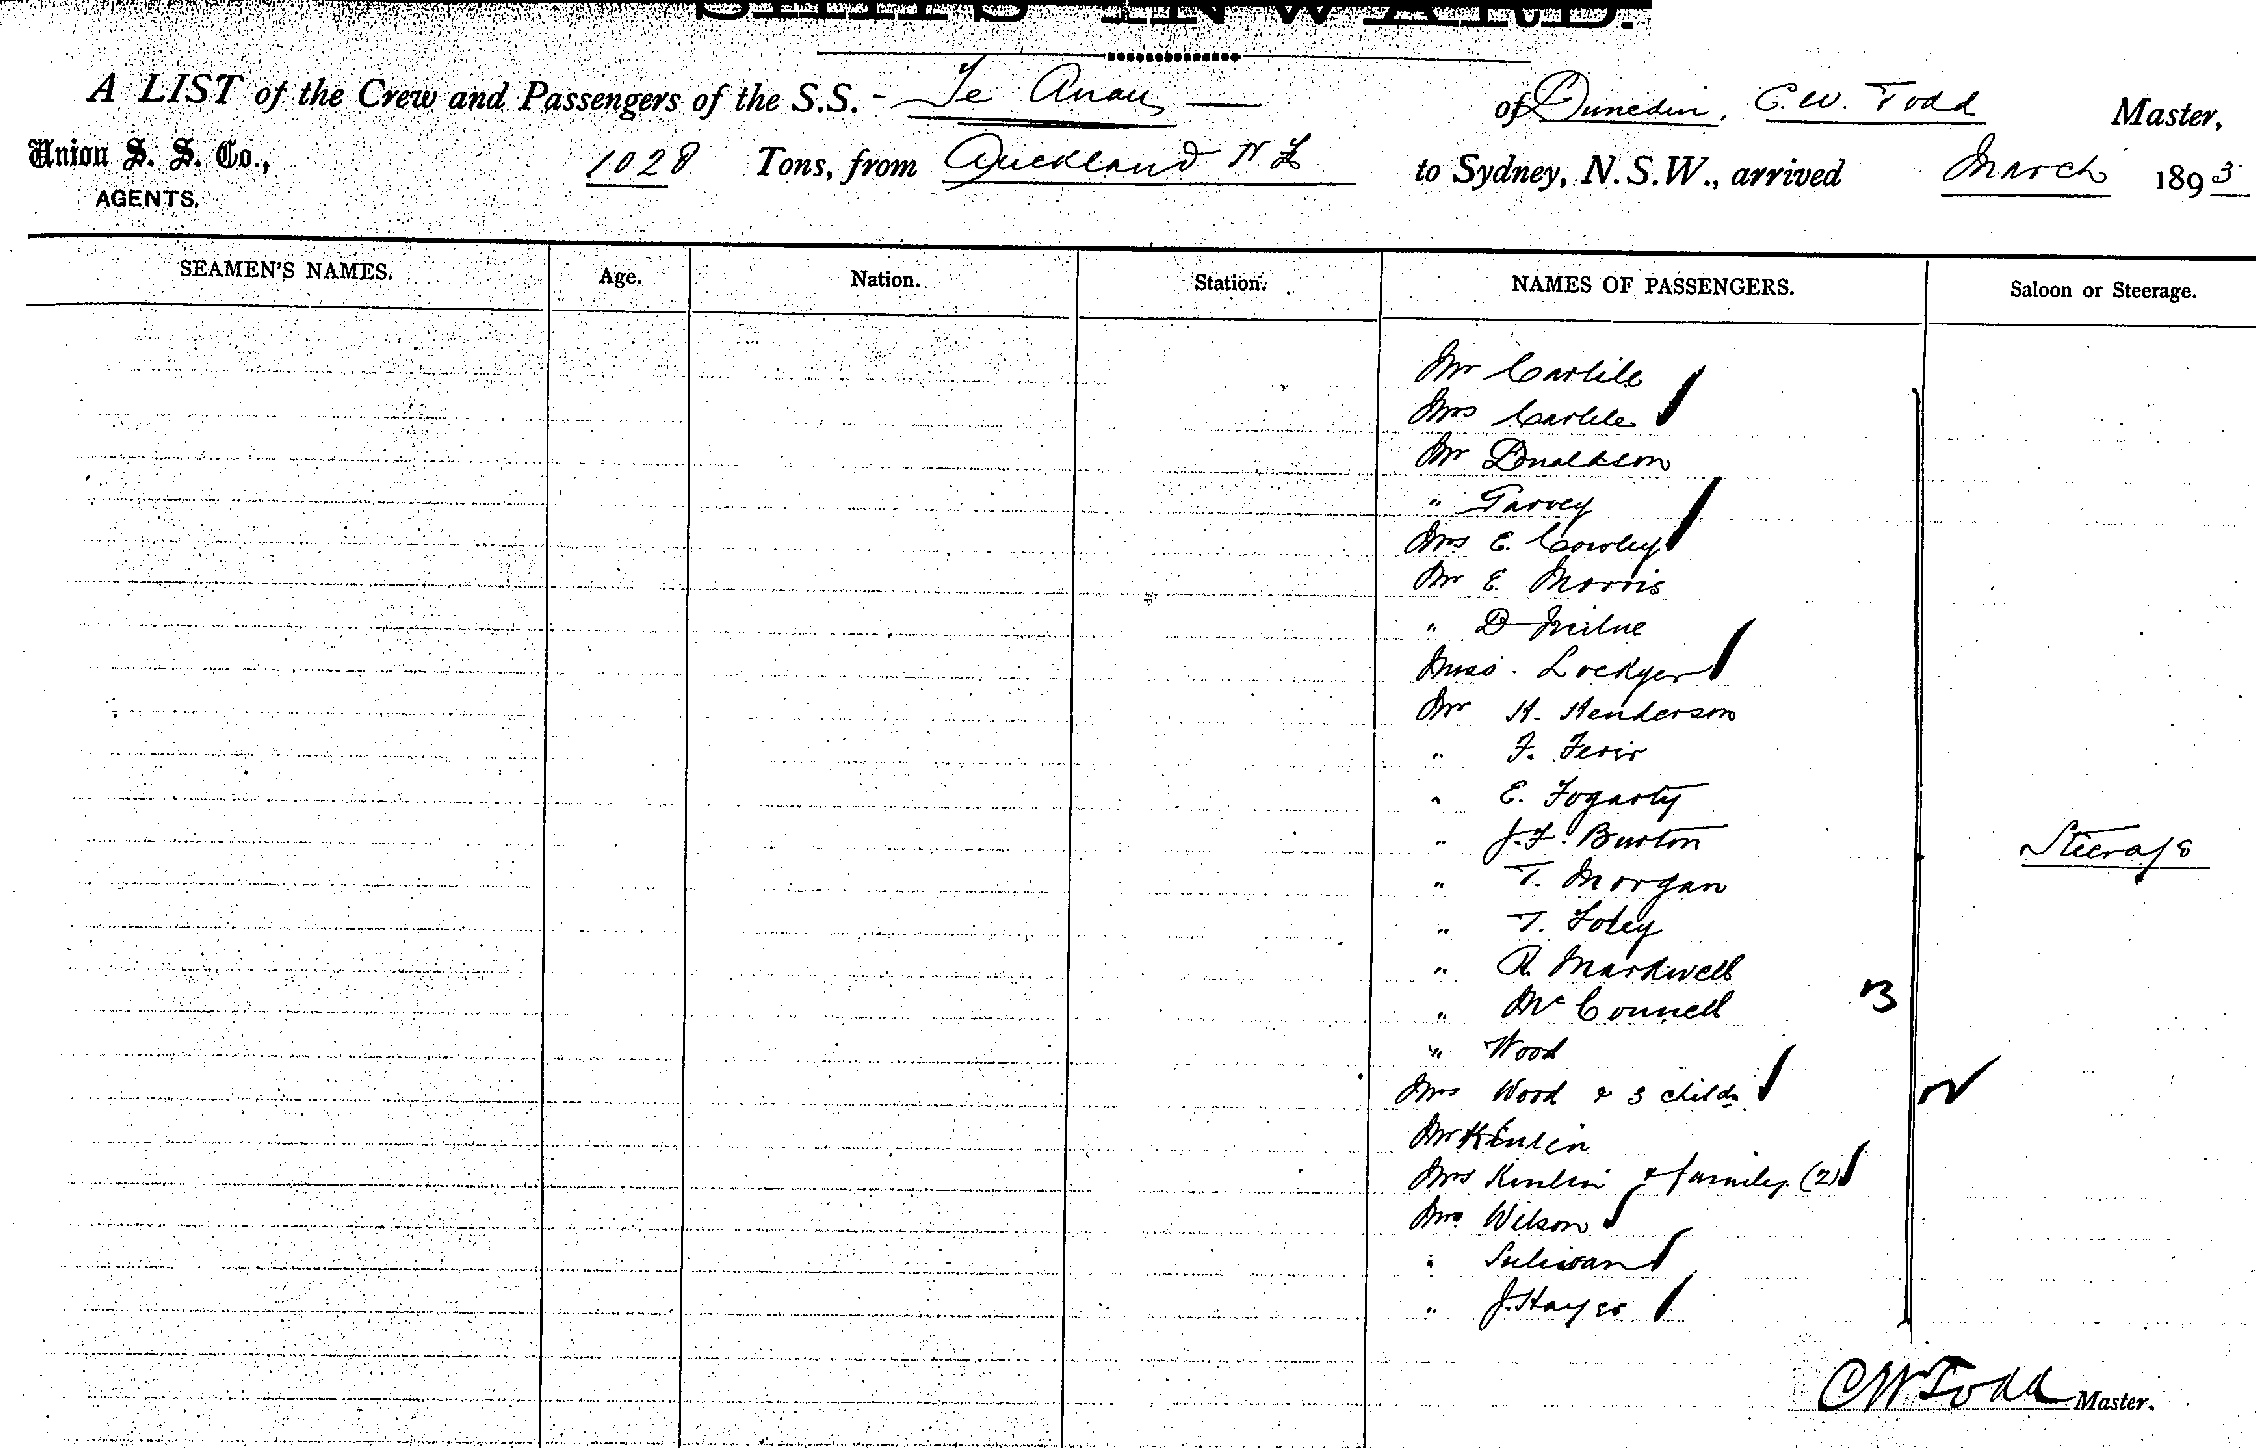 SHIPS INWARD.
A LIST of the Crew and Passengers of the S.S. - Te Anau of Dunedin, C.W. Todd Master,
Union S. S. Co., 1028 Tons, from Auckland N Z to Sydney, N.S.W., arrived March 1893
AGENTS.
SEAMEN'S NAMES. Age. Nation. Station. NAMES OF PASSENGERS. Saloon or Steerage.
Mr Carlile
Mrs Carlile
Mr Donaldson
" Garvey
Mrs E. Cowley
Mr E Morris
" D Milne
Miss. Lockyer
Mr H. Henderson
" F.
" E. Fogarty
" J.F. Burton Steerage
" T. Morgan
" T. Foley
" R. Markwell
" McConnell
" Wood
Mrs Wood & 3 childn
Mr Kinlin
Mrs Kinlin & family (2)
Mrs Wilson
" Suliwan
" J. Hayes
CW Todd Master.